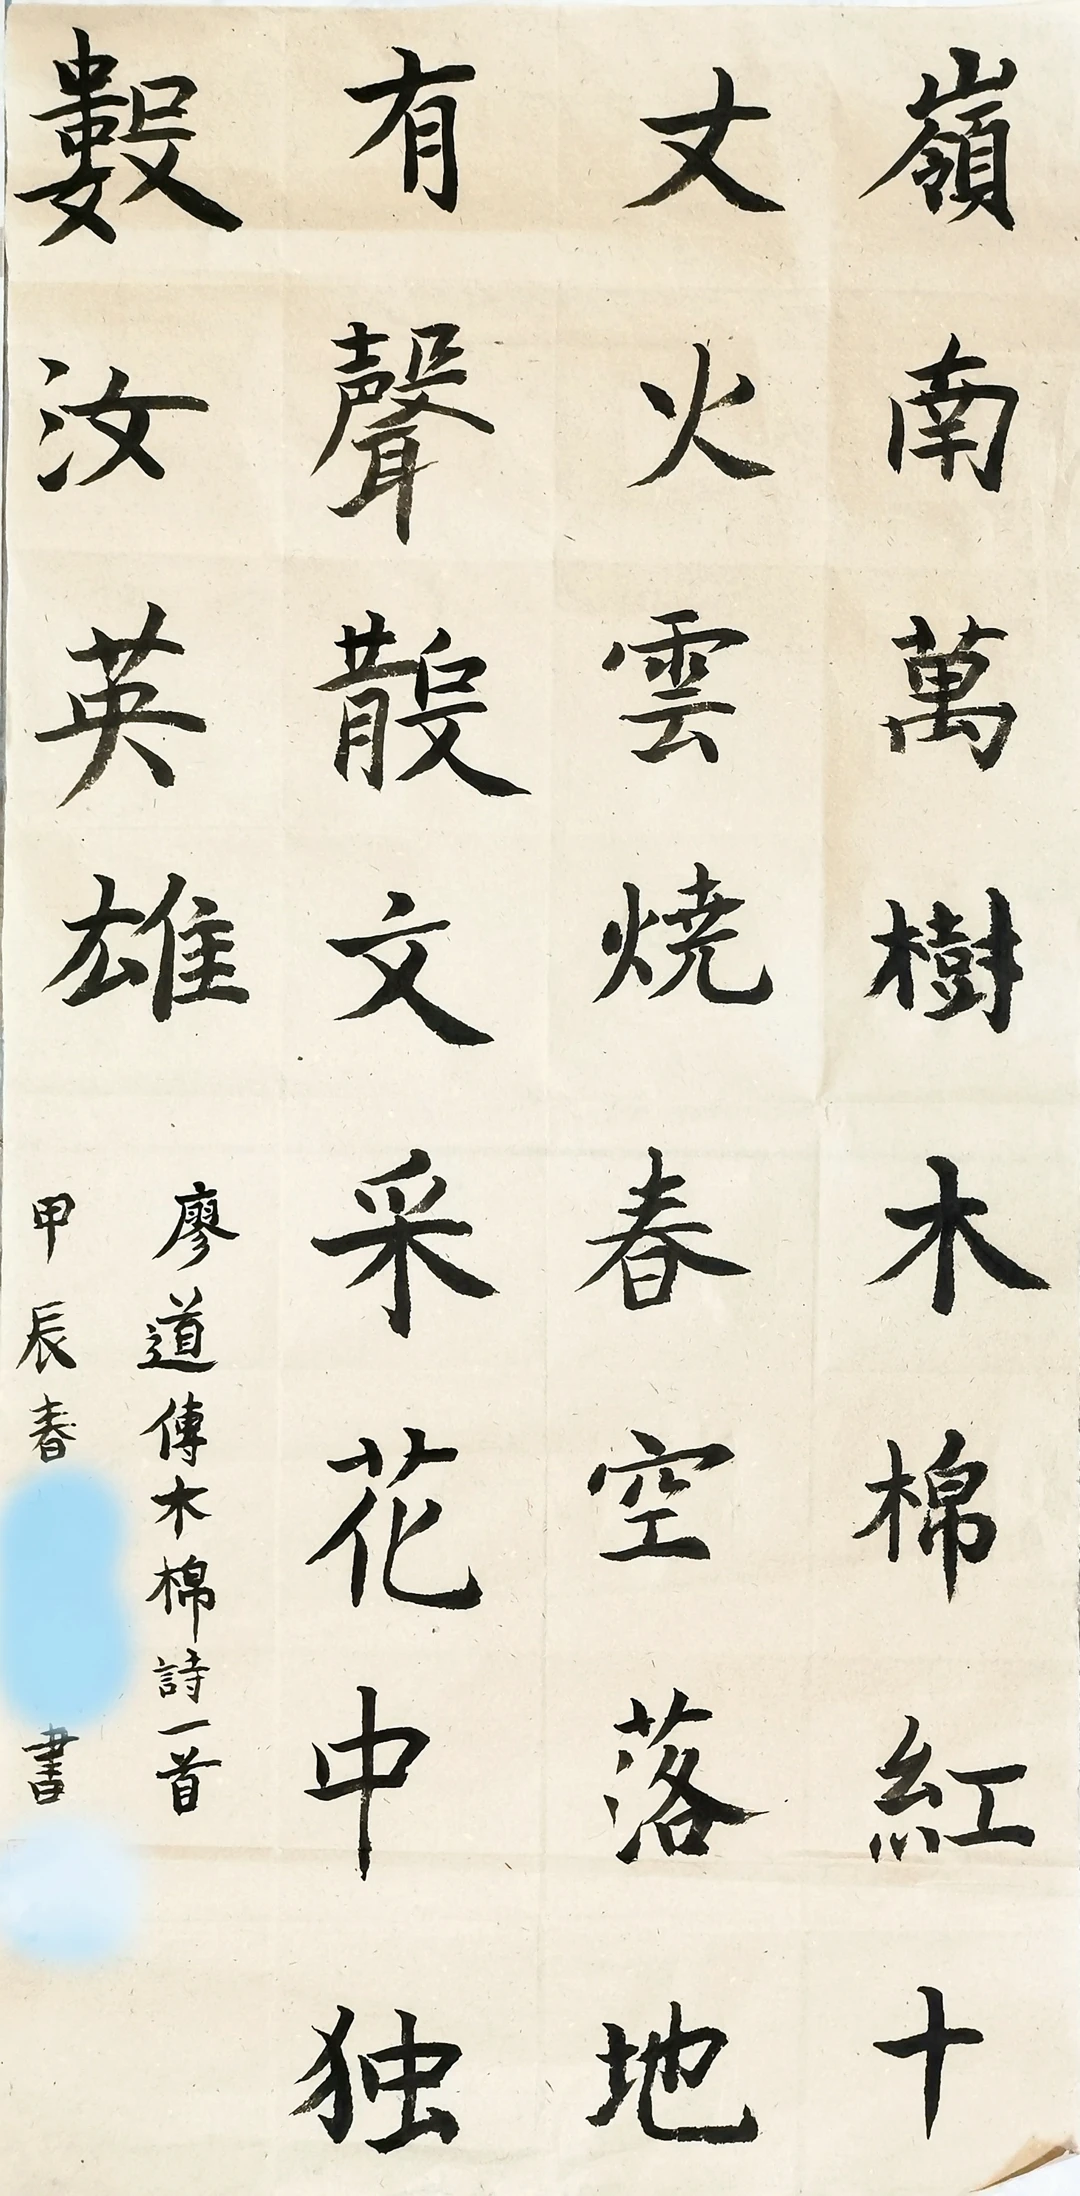 嶺南萬樹木棉紅十
丈火雲燒春空落地
有聲散文采花中独
數汝英雄
廖道傳木棉詩一首
甲辰春
書